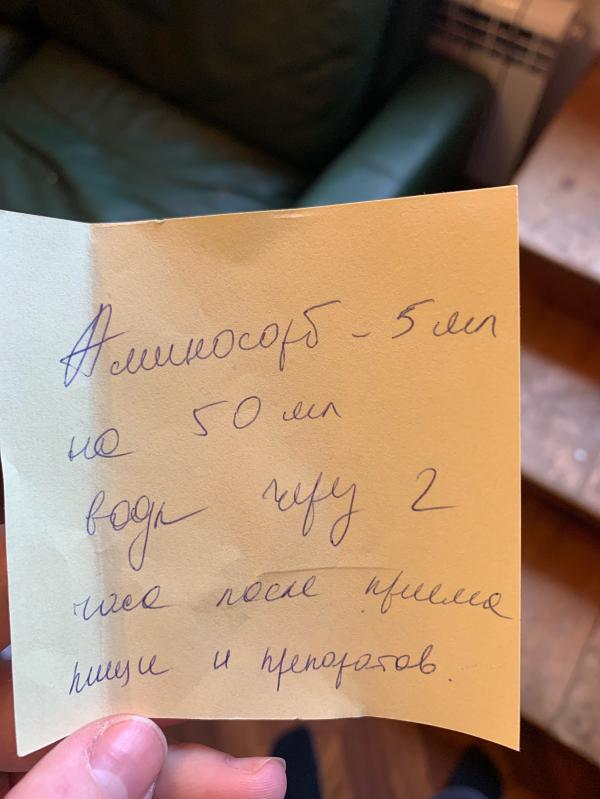 Аминосорб – 5 мл
на 50 мл
воды через 2
часа после приема
пищи и препаратов.